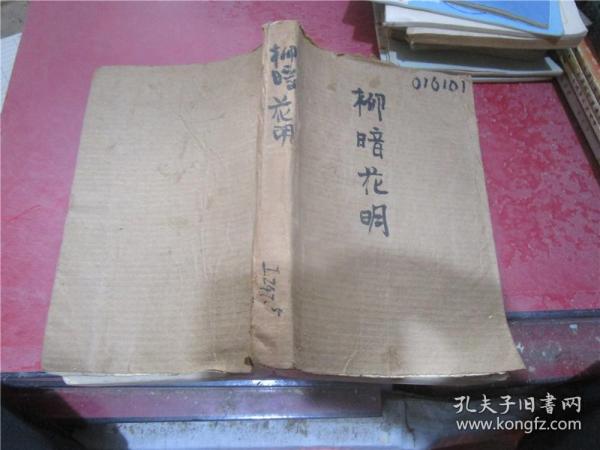 柳暗花明
I247.5
柳暗花明
010101
孔夫子旧书网
www.kongfz.com